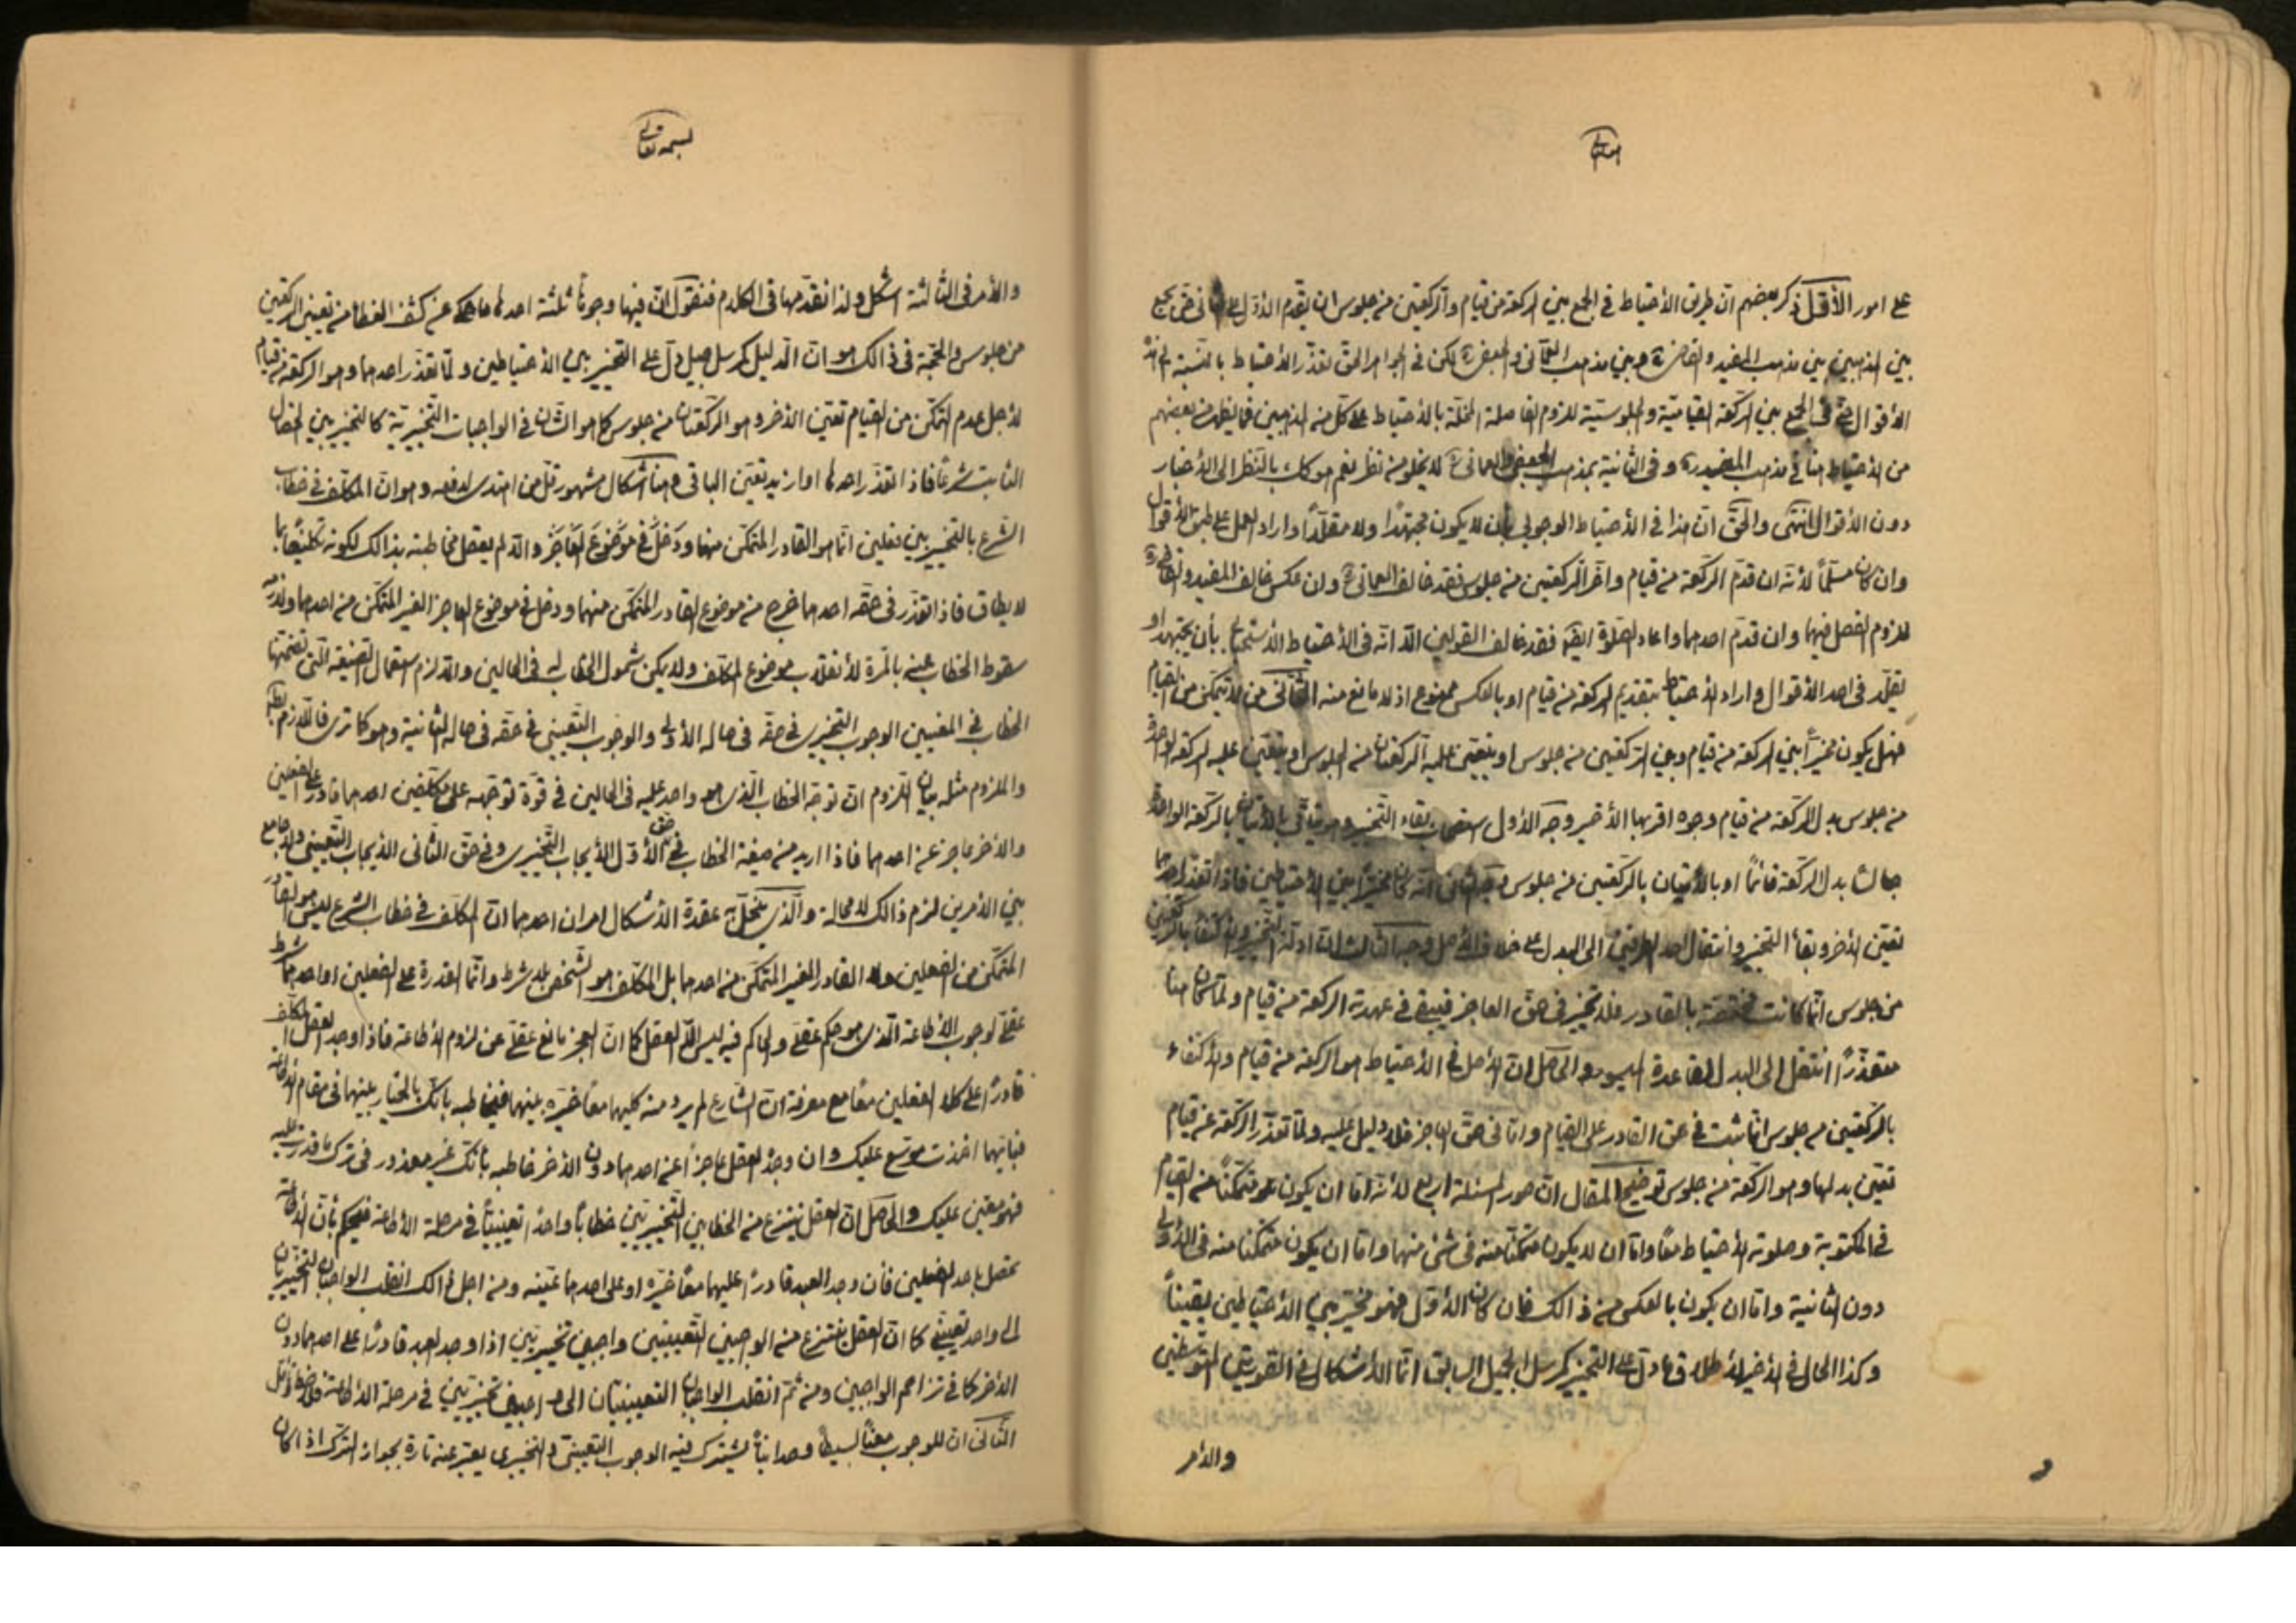 على امور الأوّل ذكر بعضهم ان طريق الأحتياط في الجمع بين الركعة من قيام والركعتين من جلوس ان يقدم الأول على الثاني
بين المذهبين بين مذهب المفيد وبين مذهب العماني والجعفي لكن في الجواهر الحق تعذر الأحتياط بالنسبة
الأقوال في الجمع بين الركعة القيامية والجلوسية للزوم الفاصلة المخلة بالأحتياط على كل من المذهبين فما يظهر من بعضهم
من الأحتياط هنا في مذهب المفيد ره وفي الثانية بمذهب الجعفي والعماني لا يخلو من نظر نعم هو كك بالنظر الى الأخبار
دون الأقوال انتهى والحق ان هذا في الأحتياط الوجوبي بأن لا يكون مجتهدًا ولا مقلّدًا واراد العمل على طبق الأقوال
وان كان مسلمًا لأنه ان قدم الركعة من قيام واخر الركعتين من جلوس فقد خالف العماني وان عكس خالف المفيد
للزوم الفصل فيهما وان قدم احدهما واعاد الصلوة ايضًا فقد خالف القولين الّا انه في الأحتياط الأستحبابي بأن يجتهد او
يقلّد في احد الأقوال واراد الأحتياط بتقديم الركعة من قيام او بالعكس ممنوع اذ لا مانع منه الثاني من لا يتمكن من القيام
فهل يكون مخيّرًا بين الركعة من قيام وبين الركعتين من جلوس او يتعين عليه الركعتان من الجلوس او يتعين عليه الركعة الواحدة
من جلوس بدل الركعة من قيام وجوه اقربها الأخير وجه الأول استصحاب بقاء التخيير بالركعة الواحدة
جالسًا بدل الركعة قائمًا او بالأتيان بالركعتين من جلوس وجه الثاني انه كان مخيّرًا بين الأحتياطين فاذا تعذر احدهما
تعيّن الأخر وبقاء التخيير وانتقال احد الفردين الى البدل على خلاف الأصل وجه الثالث ان ادلة التخيير بالركعتين
من جلوس انما كانت مختصة بالقادر فلا تخيير في حق العاجز فيبقى في عهدته الركعة من قيام ولما كان هنا
متعذرًا انتقل الى البدل لقاعدة الميسور والحاصل ان الأصل في الأحتياط هو الركعة من قيام والأكتفاء
بالركعتين من جلوس انما ثبت في حق القادر على القيام واما في حق العاجز فلا دليل عليه ولما تعذر الركعة عن قيام
تعيّن بدلها وهو الركعة من جلوس توضيح المقال ان صور المسئلة اربع لأنه اما ان يكون متمكنًا من القيام
في المكتوبة وصلوته الأحتياط معًا واما ان لا يكون متمكنًا منه في شئ منهما واما ان يكون متمكنًا منه في الأولى
دون الثانية واما ان يكون بالعكس من ذالك فان كان الأول فهو مخيّر بين الأحتياطين يقينًا
وكذا الحال في الأخير لأطلاق ما دلّ على التخيير كمرسل الجميل السابق انما الأشكال في الصورتين المتوسطتين
والأمر
بسمه تعالى
والأمر في الثالثة اشكل ولذا نقدمها في الكلام فنقول ان فيها وجوهًا ثلثة احدها ما حكي عن كشف الغطا من تعيّن الركعتين
من جلوس والحجة في ذالك هو ان الدليل كمرسل جميل دلّ على التخيير بين الأحتياطين ولما تعذر احدهما وهو الركعة من قيام
لأجل عدم التمكن من القيام تعيّن الأخر وهو الركعتان من جلوس كما هو الشأن في الواجبات التخييرية كالتخيير بين الخصال
الثابت شرعًا فاذا تعذر احدها او ازيد تعيّن الباقي وهنا اشكال مشهور قلّ من اهتدى لدفعه وهو ان المكلف في خطاب
الشرع بالتخيير بين فعلين انما هو القادر المتمكن منهما ودخل في موضوع العاجز والّا لم يعقل مخاطبته بذالك لكونه تكليفًا بما
لا يطاق فاذا تعذر في حقه احدهما خرج من موضوع القادر المتمكن منهما ودخل في موضوع العاجز الغير المتمكن من احدهما ولازمه
سقوط الخطاب عنه بالمرة لأنقلاب موضوع المكلف ولا يمكن شمول الخطاب له في الحالين والّا لزم استعمال الصيغة التي تضمنها
الخطاب في المعنيين الوجوب التخييري في حقه في حاله الأولى والوجوب التعييني في حقه في حاله الثانية وهو كما ترى فاللازم
والملزوم مثله بيان اللزوم ان توجّه الخطاب الذي هو واحد عليه في الحالين في قوة توجّهه على مكلفين احدهما قادر على الفعلين
والأخر عاجز عن احدهما فاذا اريد من صيغة الخطاب في حق الأول الأيجاب التخييري وفي حق الثاني الأيجاب التعييني ولا جامع
بين الأمرين لزم ذالك لا محالة والذي ينحلّ به عقدة الأشكال امران احدهما ان المكلف في خطاب الشرع ليس هو القادر
المتمكن من الفعلين ولا القادر الغير المتمكن من احدهما بل المكلف هو الشخص بلا شرط وانما القدرة على الفعلين او احدهما شرط
عقلي لوجوب الأطاعة الذي هو حكم عقلي والحاكم فيه ليس الّا العقل كما ان العجز مانع عقلي عن لزوم الأطاعة فاذا وجد العقل المكلف
قادرًا على كلا الفعلين معًا مع معرفة ان الشارع لم يرد منه كليهما معًا خيّره بينهما فيخاطبه بأنك بالخيار بينهما في مقام الأطاعة
فبأيهما اخذت موسّع عليك وان وجد العقل عاجزًا عن احدهما دون الأخر خاطبه بأنك غير معذور في ترك ما قدرت عليه
فهو معيّن عليك والحاصل ان العقل ينتزع من الخطابين التخييريين خطابًا واحدًا تعيينيًا في مرحلة الأطاعة فيحكم بأن الأطاعة
تحصل بأحد الفعلين فان وجد العبد قادرًا عليهما معًا خيّره او على احدهما عيّنه ومن اجل ذالك انقلب الواجبان التخييريان
الى واحد تعييني كما ان العقل ينتزع من الوجوبين التعيينيين واجبين تخييريين اذا وجد العبد قادرًا على احدهما دون
الأخر كما في تزاحم الواجبين ومن ثمّ انقلب الواجبان التعيينيان الى واجبين تخييريين في مرحلة الأطاعة
الثاني ان للوجوب معنًا بسيطًا وحدانيًا يشترك فيه الوجوب التعييني والتخييري يعبّر عنه تارة بجواز الترك اذا كان